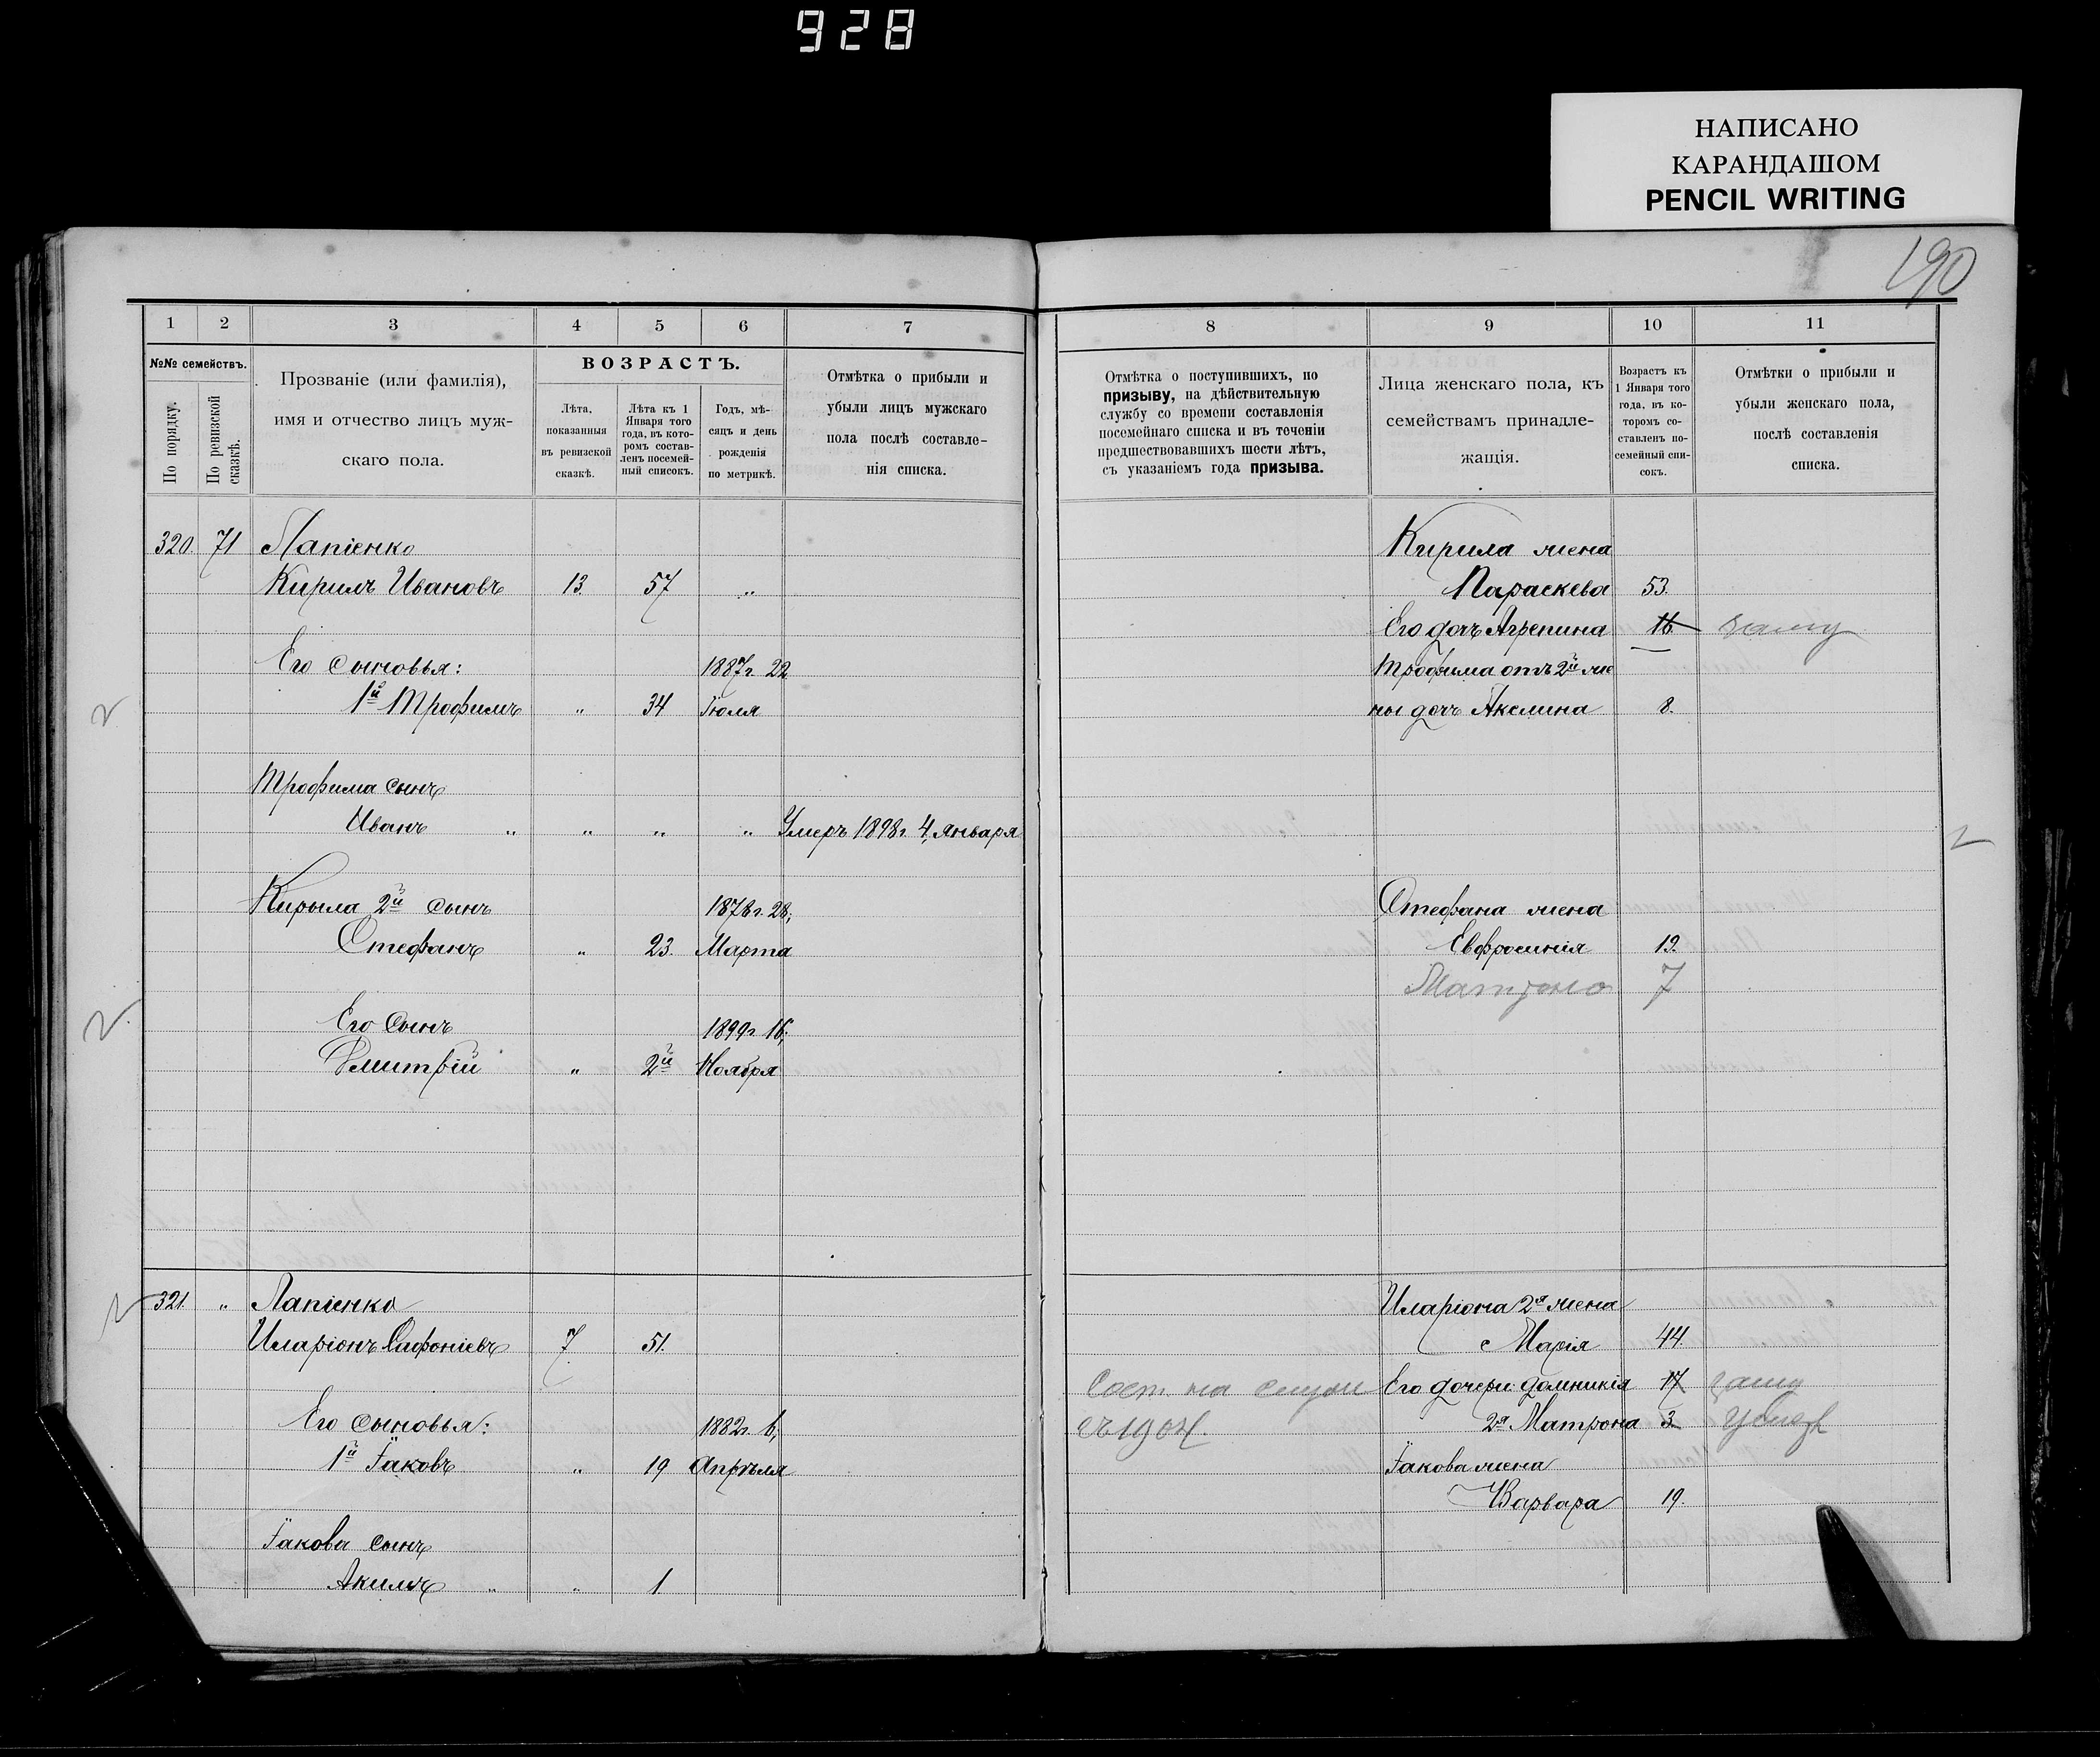 928
НАПИСАНО
КАРАНДАШОМ
PENCIL WRITING
190
1 2 3 4 5 6 7
№№ семействъ.
По порядку.
По ревизской сказкѣ.
Прозваніе (или фамилія),
имя и отчество лицъ муж-
скаго пола.
ВОЗРАСТЪ.
Лѣта,
показанныя
въ ревизской
сказкѣ.
Лѣта къ 1
Января того
года, въ кото-
ромъ состав-
ленъ посемей-
ный списокъ.
Годъ, мѣ-
сяцъ и день
рожденія
по метрикѣ.
Отмѣтка о прибыли и
убыли лицъ мужскаго
пола послѣ составле-
нія списка.
320. 71 Лапіенко
Кирилъ Ивановъ 13. 57 „
Его сыновья: 1887г. 22
1й Трофимъ „ 34 Іюля
Трофима сынъ
Иванъ „ „ „ „ Умеръ 1898г. 4, Января
Кирыла 2й сынъ 1878г. 28,
Стефанъ „ 23. Марта
Его Сынъ 1899г. 16,
Дмитрій „ 2й Ноября
321. „ Лапіенко
Иларіонъ Сафоніевъ 7 51.
Его сыновья: 1882г. 6,
1й Іаковъ „ 19 Апрѣля
Іакова сынъ
Акимъ „ „ 1
8 9 10 11
Отмѣтка о поступившихъ, по
призыву, на дѣйствительную
службу со времени составленія
посемейнаго списка и въ теченіи
предшествовавшихъ шести лѣтъ,
съ указаніемъ года призыва.
Лица женскаго пола, къ
семействамъ принадле-
жащія.
Возрастъ къ
1 Января того
года, въ ко-
торомъ со-
ставленъ по-
семейный спи-
сокъ.
Отмѣтки о прибыли и
убыли женскаго пола,
послѣ составленія
списка.
Кирила жена
Параскева 53.
Его дочь Агрепина 16
Трофима отъ 2й же
ны дочь Акелина 8.
Стефана жена
Евфросинія 19.
Матрона 7
Иларіона 2я жена
Марія 44.
Сост на служ Его дочери Домникія 17
съ 1904.
2я Матрона 3.
Іакова жена
Варвара 19.